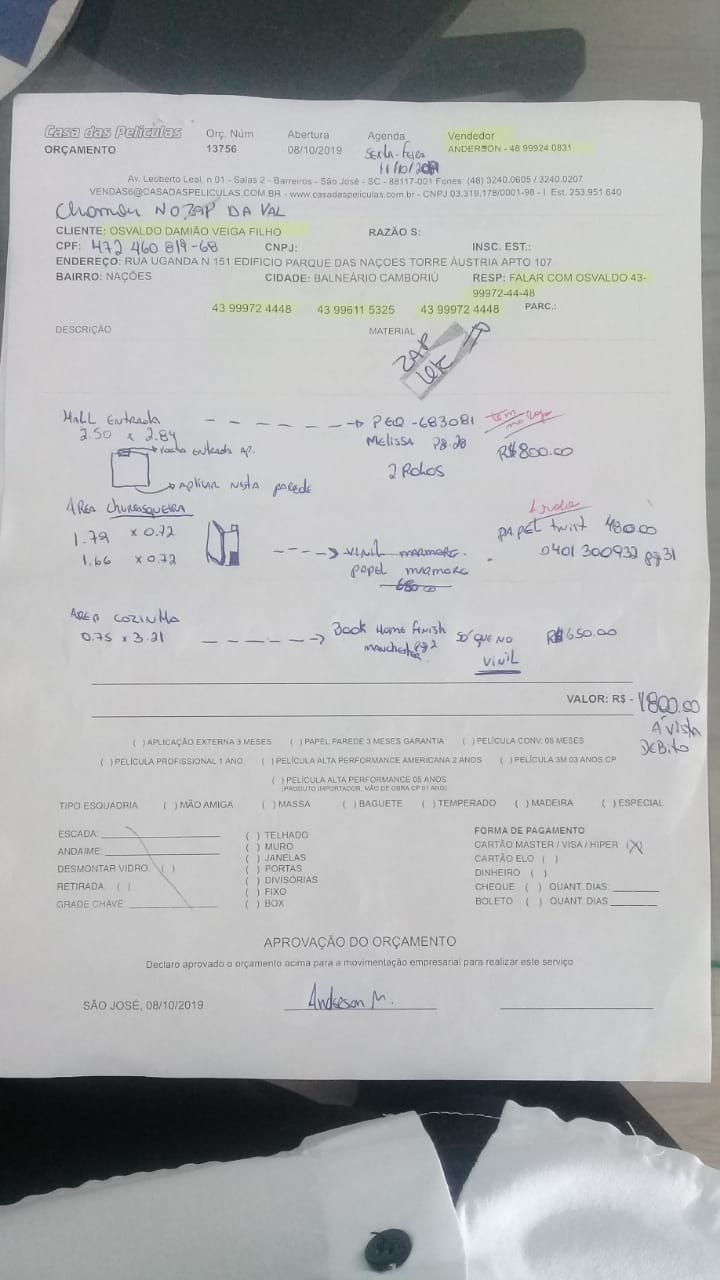 Casa das Películas Orç. Núm Abertura Agenda Vendedor
ORÇAMENTO 13756 08/10/2019 Sexta-feira ANDERSON - 48 99924 0831
11/10/2019
Av. Leoberto Leal, n 01 - Salas 2 - Barreiros - São José - SC - 88117-001 Fones: (48) 3240.0605 / 3240.0207
VENDAS6@CASADASPELICULAS.COM.BR - www.casadaspeliculas.com.br - CNPJ 03.319.178/0001-98 - I. Est. 253.951.640
Chamou NO ZAP DA VAL
CLIENTE: OSVALDO DAMIÃO VEIGA FILHO RAZÃO S:
CPF: 472 460 819-68 CNPJ: INSC. EST.:
ENDEREÇO: RUA UGANDA N 151 EDIFICIO PARQUE DAS NAÇOES TORRE ÁUSTRIA APTO 107
BAIRRO: NAÇÕES CIDADE: BALNEÁRIO CAMBORIÚ RESP: FALAR COM OSVALDO 43-
99972-44-48
43 99972 4448 43 99611 5325 43 99972 4448 PARC.:
DESCRIÇÃO MATERIAL
ZAP
HALL Entrada PEQ - 683081
2.50 x 2.84 MELISSA Pg. 28 R$800.00
entrada AP. 2 Rolos
Aplicar nesta parede
AREA CHURRASQUEIRA 1 rolo
1.79 x 0.72 PAPEL twist 480.00
1.66 x 0.72 VINIL MARMORE. 0401 300932 Pg 31
PAPEL MARMORE
680.00
AREA COZINHA
0.75 x 3.21 Book Home Finish SÓ QUE NO R$650.00
Manchester Pg 2 VINIL
VALOR: R$ - 1800.00
À vista
Débito
( ) APLICAÇÃO EXTERNA 3 MESES ( ) PAPEL PAREDE 3 MESES GARANTIA ( ) PELÍCULA CONV. 06 MESES
( ) PELÍCULA PROFISSIONAL 1 ANO ( ) PELÍCULA ALTA PERFORMANCE AMERICANA 2 ANOS ( ) PELÍCULA 3M 03 ANOS CP
( ) PELÍCULA ALTA PERFORMANCE 05 ANOS
(PRODUTO IMPORTADOR, MÃO DE OBRA CP 01 ANO)
TIPO ESQUADRIA ( ) MÃO AMIGA ( ) MASSA ( ) BAGUETE ( ) TEMPERADO ( ) MADEIRA ( ) ESPECIAL
ESCADA: ( ) TELHADO FORMA DE PAGAMENTO
ANDAIME: ( ) MURO CARTÃO MASTER / VISA / HIPER (X)
DESMONTAR VIDRO: ( ) ( ) JANELAS CARTÃO ELO ( )
RETIRADA: ( ) ( ) PORTAS DINHEIRO ( )
GRADE CHAVE ( ) DIVISÓRIAS CHEQUE ( ) QUANT. DIAS:
( ) FIXO BOLETO ( ) QUANT. DIAS
( ) BOX
APROVAÇÃO DO ORÇAMENTO
Declaro aprovado o orçamento acima para a movimentação empresarial para realizar este serviço
SÃO JOSÉ, 08/10/2019 Anderson M.